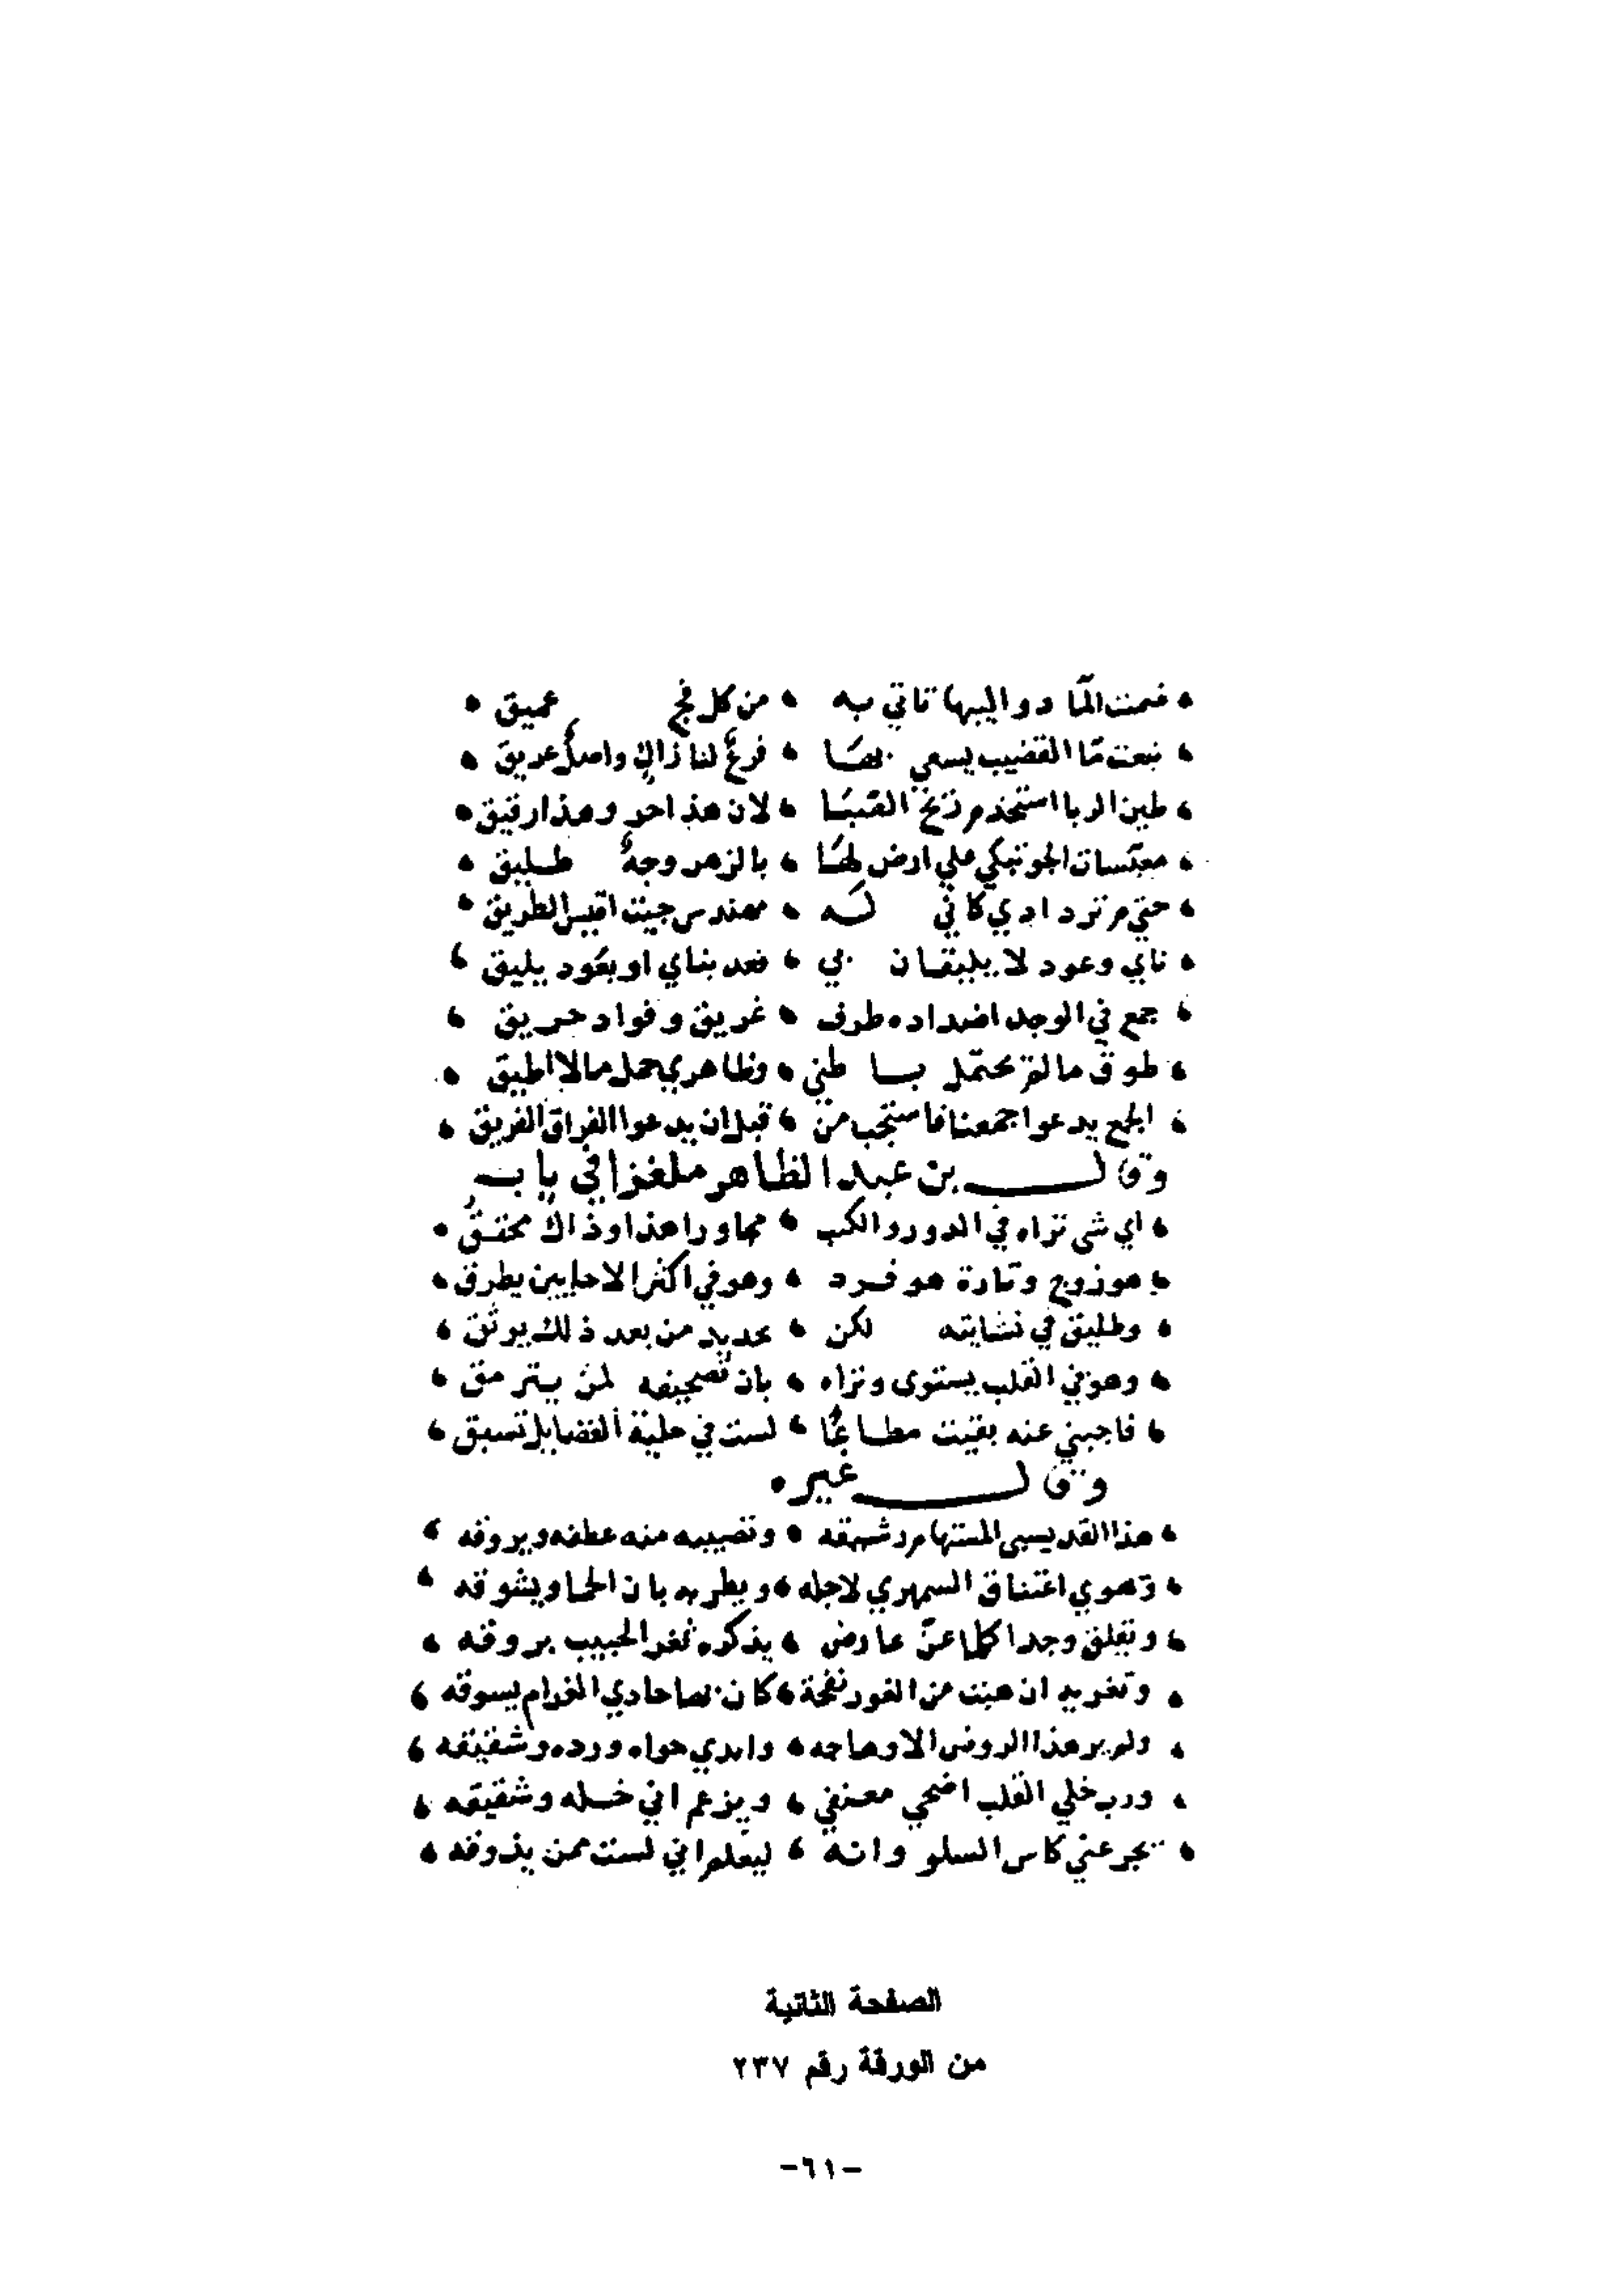 ضمنت المآ دواليبها تاتي به ، من كل فج عميق ،
نبعت مآ القضيب يسعي بها ، فرعٌ لنا زاكٍ واصلٌ عريق ،
طين الربا استخدم زنج ، لان هذا حر وهذا رقيق ،
الجو تبكي علي ارض لها ، بالزهر وجهٌ طليق ،
حتي م تردادي كاني له ، مهندس جيت اقيس الطريق ،
ناي وعود لا يليقان بي ، فعد بناي او بعود يليق ،
جمع في الوجد اضداده طرف ، غريق وفواد حريق ،
طوق ما لم يحتمل باطني ، وظاهري يحمل ما لا اطيق ،
الجمع يدعوا جمعنا فاستجب من ، قبل ان يدعوا الفراق الفريق ،
وقال بن عبد الظاهر ملغزا في باب
، اي شي تراه في الدور والكب ، مجاورا هذا وذاك محقق ،
، هو زوج وتارة هو فرد ، وهو في اكثر الاحايين يطرق ،
، وطليق في نشايته لكن ، بحديد من بعد ذلك يوثق ،
، وهو في القلب يستوى وتراه ، بان تصحيفه لمن يترمق ،
، فاجبني عنه بقيت مطاعًا ، لست في حلبة الفضايل تسبق ،
وقال غيره
، هذا القد يسبي المستهام رشيقه ، وقضيبه منه عطفه ويروقه ،
، وتهوي اعتناق السمهري لاجله ، ويطربه بان الحما ويشوقه ،
، ويقلق وجدا كلما عنّ عارض ، يذكره ثغر الحبيب بروقه ،
، وتغريه ان هبت من الغور نفحة ، كان بها حادي الغرام يسوقه ،
، ولم ير هذا الروض الا وهاجه ، وابدي هواه ورده وشقيقه ،
، ورب خلي القلب اضحي معنفي ، ويزعم اني خله وشقيقه ،
، يجرعني كاس السلو وانه ، ليعلم اني لست ممن يذوقه ،
الصفحة الثانية
من الورقة رقم ٢٣٧
-٦١-